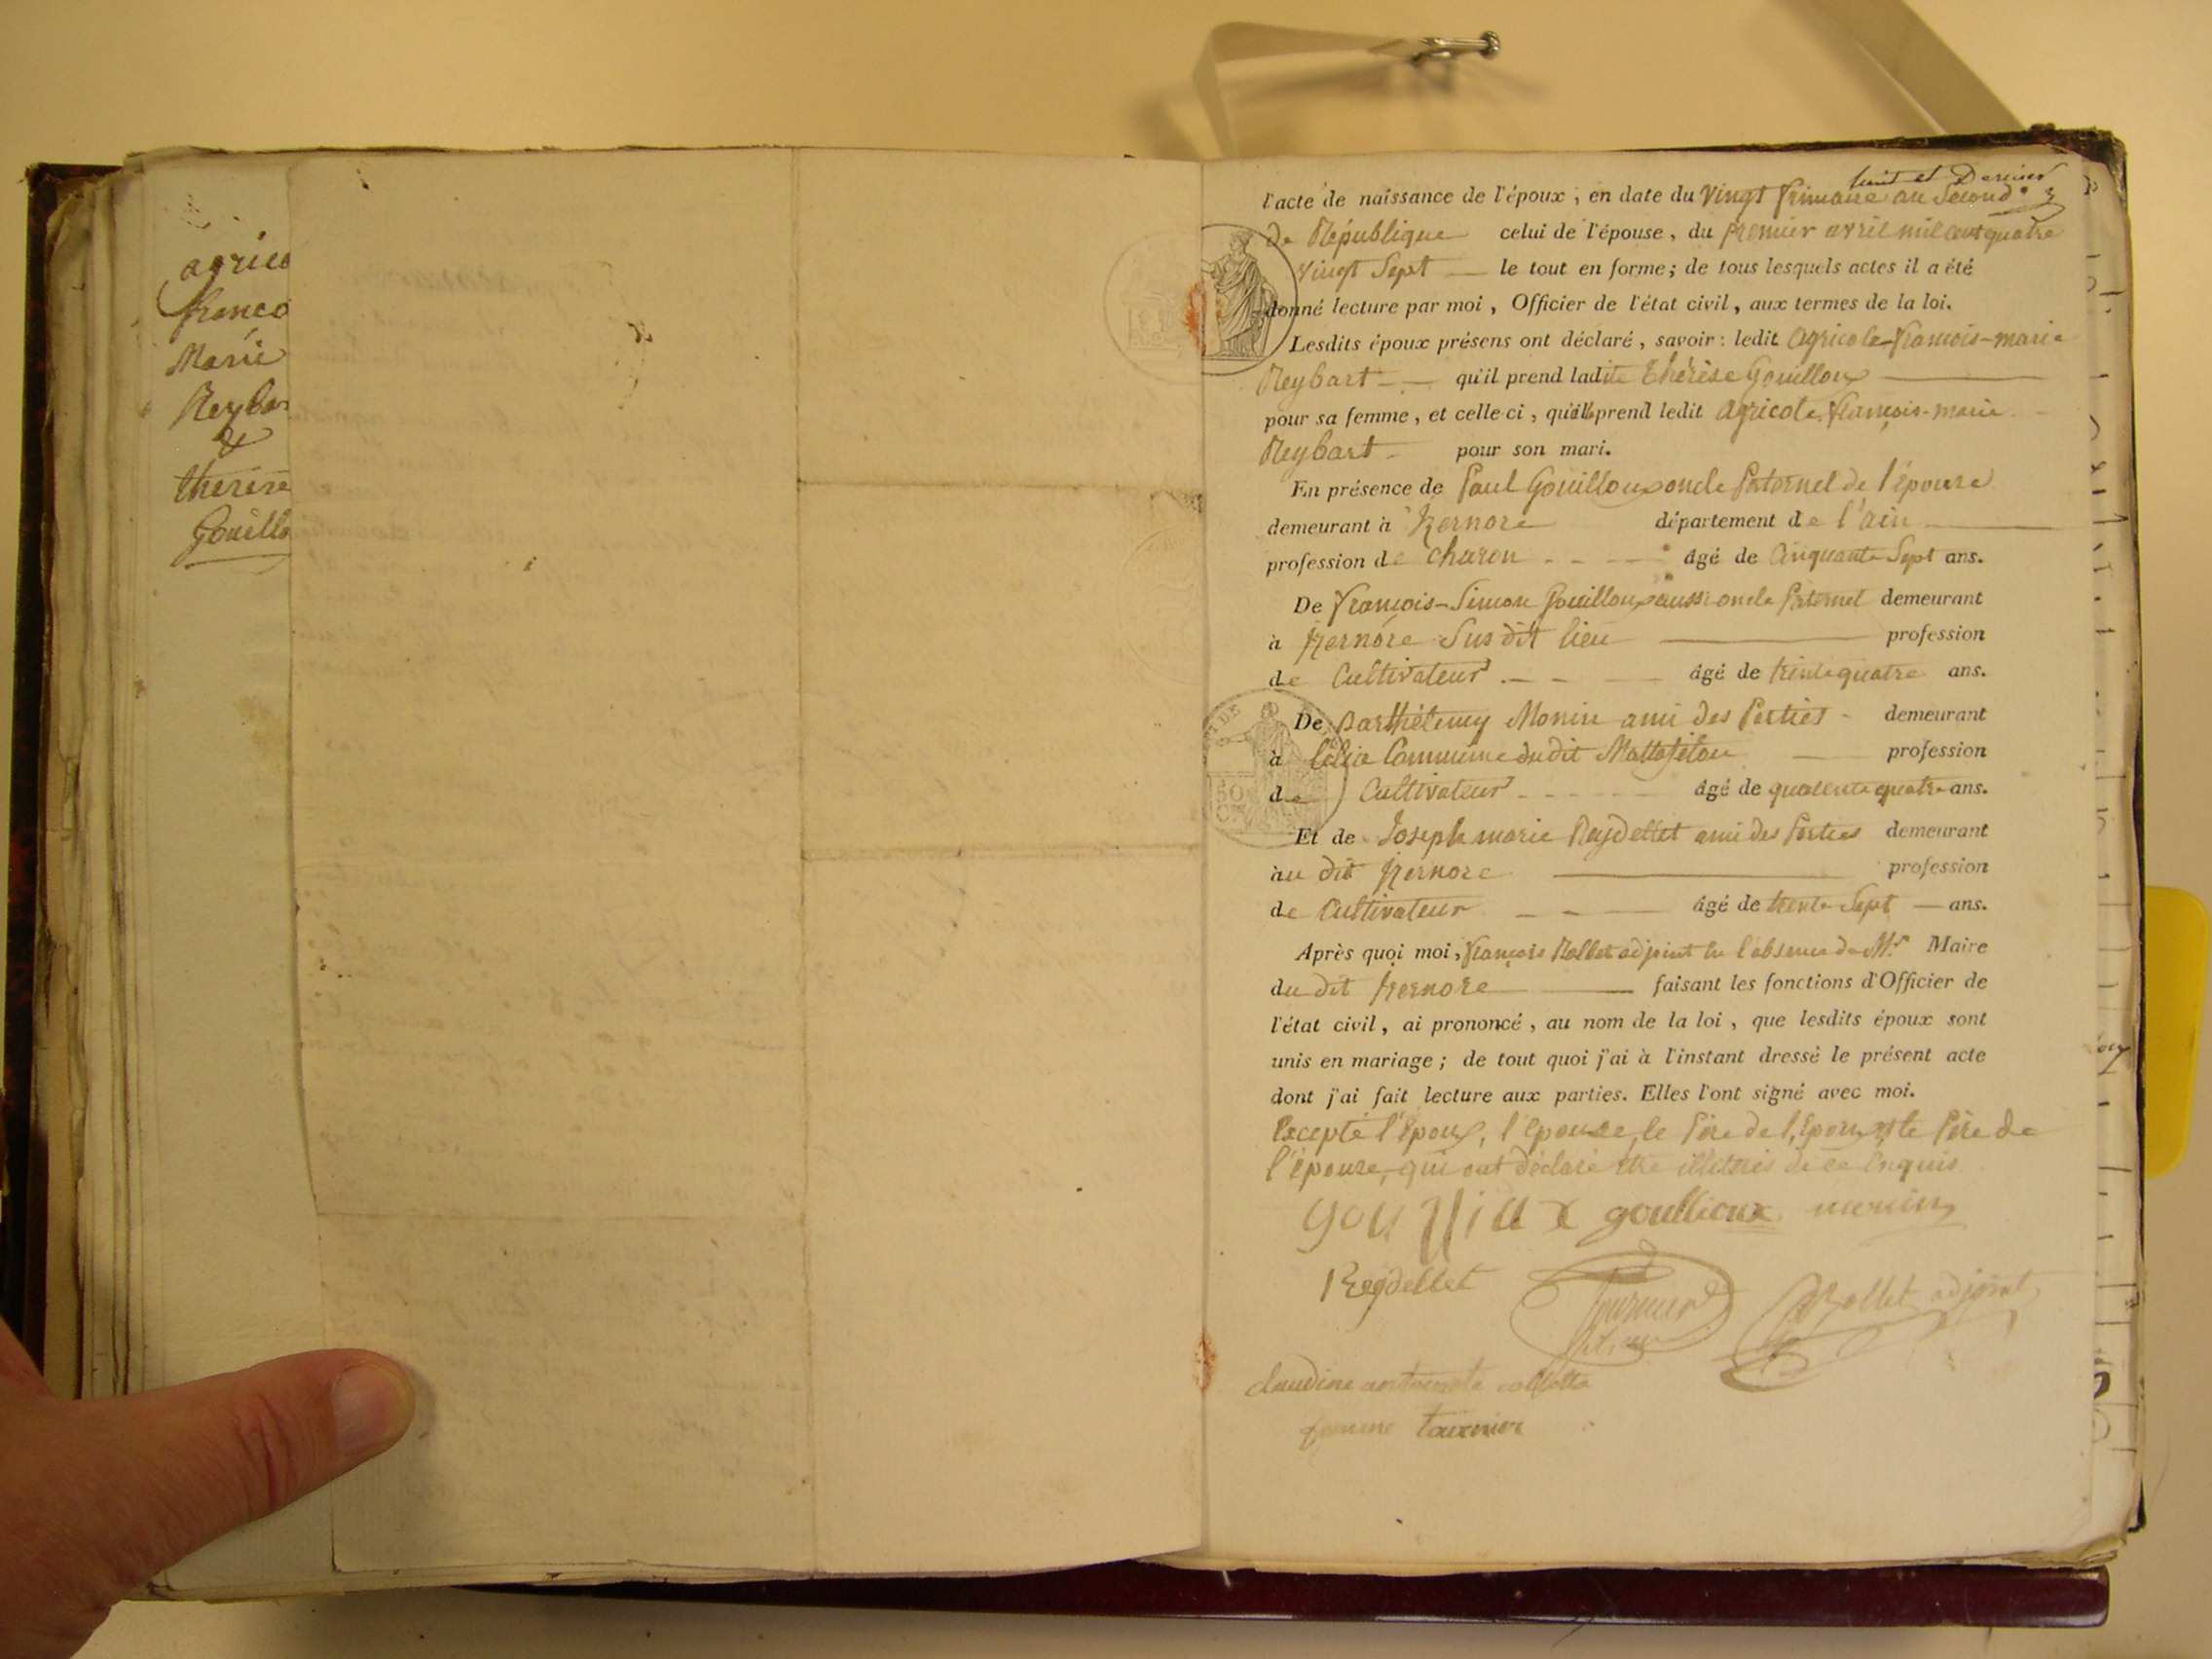 agrico
franco
Marie
Reybar
&
therese
Gouillo
huit et Dernier
l'acte de naissance de l'époux, en date du vingt frimaire an Second
de République celui de l'épouse, du premier avril mil cent quatre
vingt Sept le tout en forme; de tous lesquels actes il a été
donné lecture par moi, Officier de l'état civil, aux termes de la loi.
Lesdits époux présens ont déclaré, savoir: ledit agricole-françois-marie
Reybart qu'il prend ladite thérèse Gouilloux
pour sa femme, et celle-ci, qu'elle prend ledit agricole, françois-marie
Reybart pour son mari.
En présence de Paul Gouilloux oncle Paternel de l'épouse
demeurant à Izernore département de l'ain
profession de charon âgé de Cinquante Sept ans.
De françois-Simon Gouilloux aussi oncle Paternel demeurant
à Izernore Sus dit lieu profession
de Cultivateur âgé de trente quatre ans.
De Barthélemy Monin ami des Parties demeurant
à Commune du dit Mattafelon profession
de Cultivateur âgé de quarente quatre ans.
Et de Joseph marie Reydellet ami des Parties demeurant
au dit Izernore profession
de Cultivateur âgé de trente Sept ans.
Après quoi moi, françois Rollet adjoint en l'absence de Mr Maire
du dit Izernore faisant les fonctions d'Officier de
l'état civil, ai prononcé, au nom de la loi, que lesdits époux sont
unis en mariage; de tout quoi j'ai à l'instant dressé le présent acte
dont j'ai fait lecture aux parties. Elles l'ont signé avec moi.
Excepté l'époux, l'épouse, le Père de l'époux et le Père de
l'épouse, qui ont déclaré être illitérés de ce Enquis
gouilloux goullioux monin
Reydellet Rollet adjoint
claudine collette
femme tournier